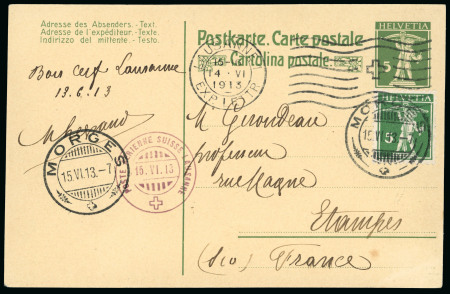 Adresse des Absenders. - Text.
Adresse de l'expéditeur. - Texte.
Indirizzo del mittente. - Testo.
Postkarte. Carte postale
Cartolina postale.
HELVETIA
5
HELVETIA
5
LAUSANNE
15
14 · VI
1913
Bois Cerf Lausanne
13.6.13
M Girondeau
professeur
rue Magne
Etampes
(S&O) France
MORGES
15.VI.13.-7
POSTE AÉRIENNE SUISSE LAUSANNE
15.VI.13
MORGES
15.VI.13.-7